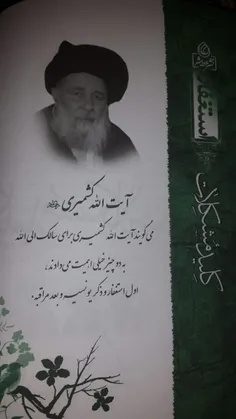 آیت الله کشمیری
می گویند آیت الله کشمیری برای سالک الی الله
به دو چیز خیلی اهمیت می دادند،
اول استغفار و ذکر یونسیه و بعد مراقبه.
استغفار
کلید مشکلات